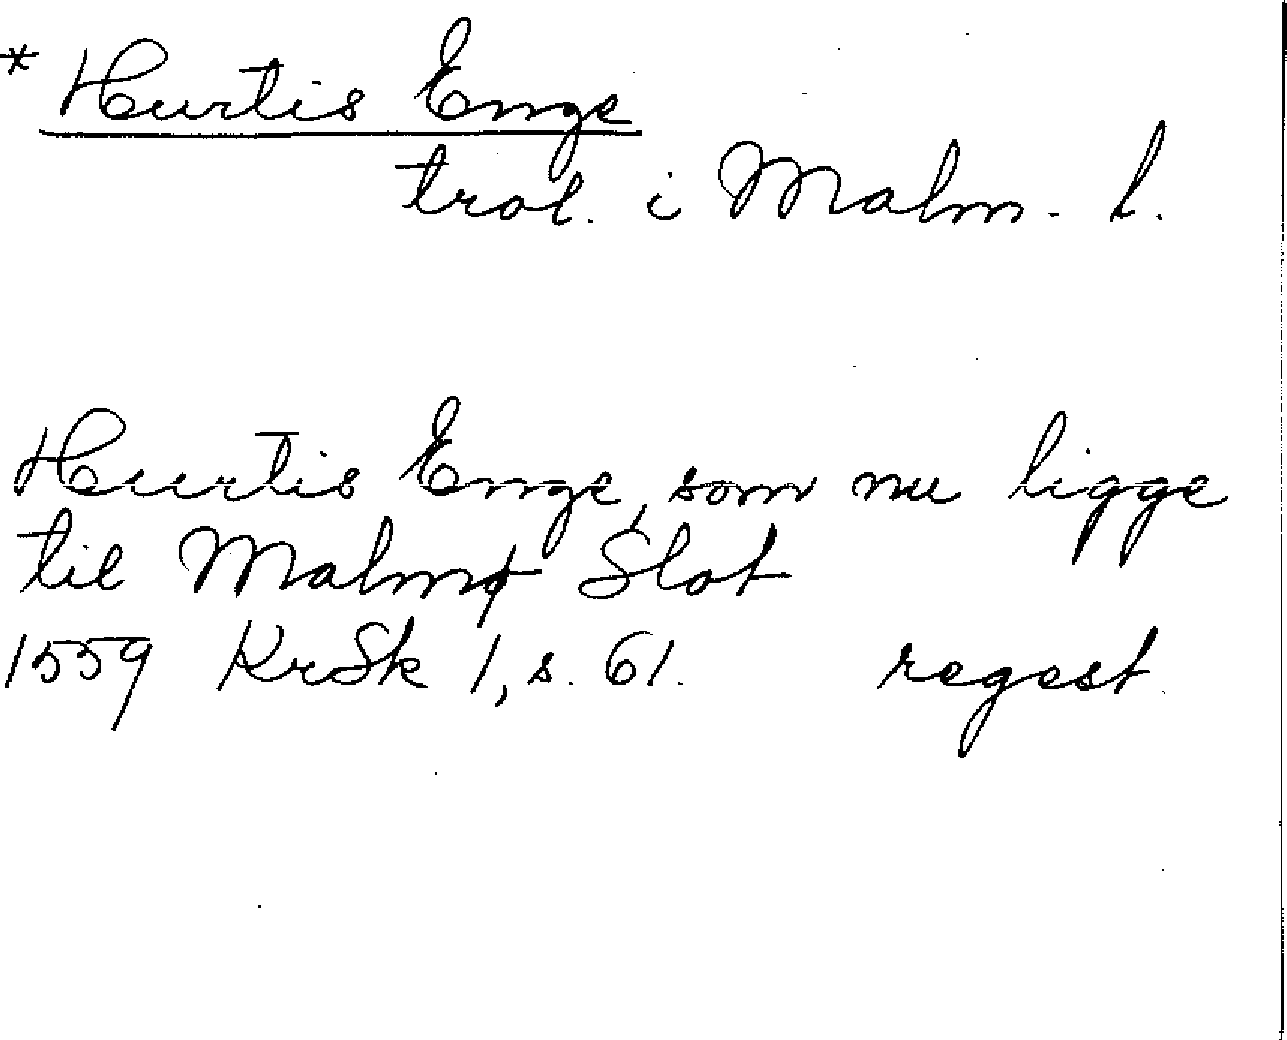 * Hurtis Enge
trol. i Malm. l.
Hurtis Enge, som nu ligge
til Malmø Slot
1559 KrSk 1, s. 61. regest